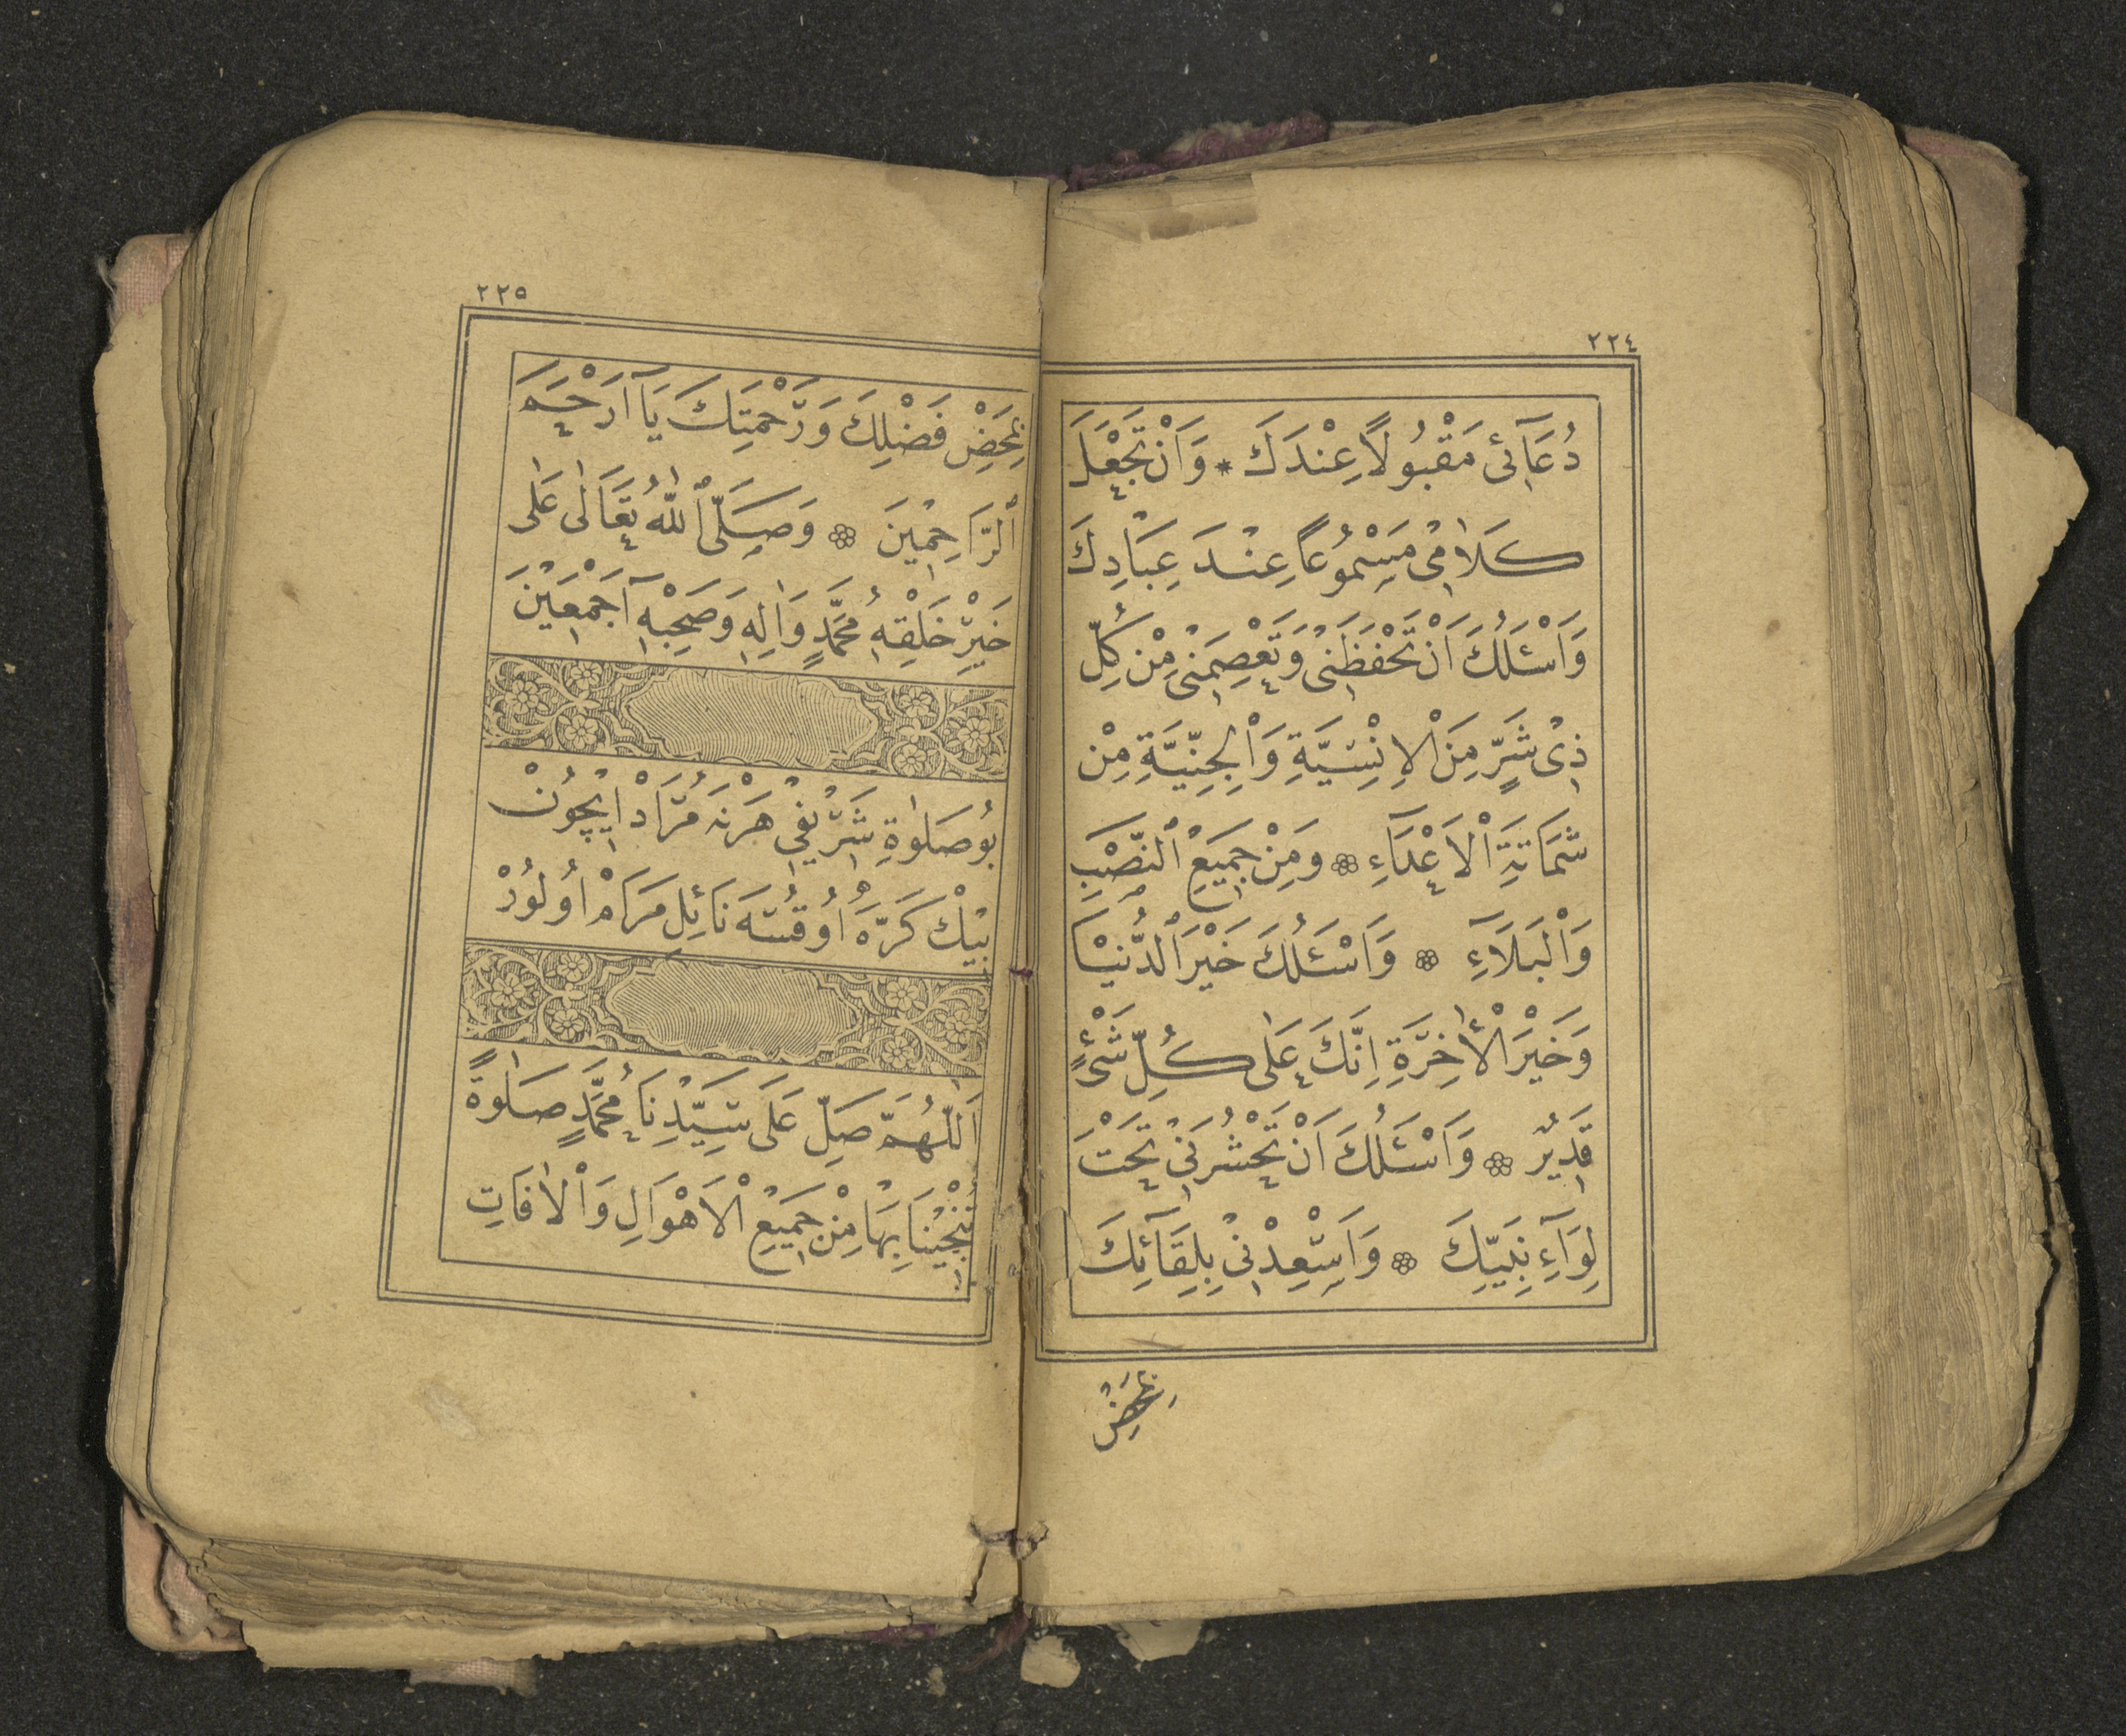 ٢٢٤
دُعَآئی مَقْبُولًا عِنْدَكَ * وَاَنْ تَجْعَلَ
كَلَامٖی مَسْمُوعًا عِنْدَ عِبَادِكَ
وَاَسْئَلُكَ اَنْ تَحْفَظَنٖی وَتَعْصِمَنٖی مِنْ كُلِّ
ذٖی شَرٍّ مِنَ الْاِنْسِيَّةِ وَالْجِنِّيَّةِ مِنْ
شَمَاتَةِ الْاَعْدَآءِ ۞ وَمِنْ جَمٖيعِ النَّصَبِ
وَالْبَلَآءِ ۞ وَاَسْئَلُكَ خَيْرَ الدُّنْيَا
وَخَيْرَ الْاٰخِرَةِ اِنَّكَ عَلٰى كُلِّ شَیْءٍ
قَدٖيرٌ ۞ وَاَسْئَلُكَ اَنْ تَحْشُرَنٖی تَحْتَ
لِوَآءِ نَبِيِّكَ ۞ وَاَسْعِدْنٖی بِلِقَآئِكَ
بِمَحْضِ
٢٢٥
بِمَحْضِ فَضْلِكَ وَرَحْمَتِكَ يَآ اَرْحَمَ
الرَّاحِمٖينَ ۞ وَصَلَّى اللّٰهُ تَعَالٰى عَلٰى
خَيْرِ خَلْقِهٖ مُحَمَّدٍ وَاٰلِهٖ وَصَحْبِهٖٓ اَجْمَعٖينَ
بُو صَلٰوةِ شَرٖيفٖی هَرْنَه مُرَادْ اٖيچُونْ
بٖيكْ كَرَّه اُوقُنْسَه نَائِلِ مَرَامْ اُولُورْ
اَللّٰهُمَّ صَلِّ عَلٰى سَيِّدِنَا مُحَمَّدٍ صَلٰوةً
تُنْجٖينَا بِهَا مِنْ جَمٖيعِ الْاَهْوَالِ وَالْاٰفَاتِ